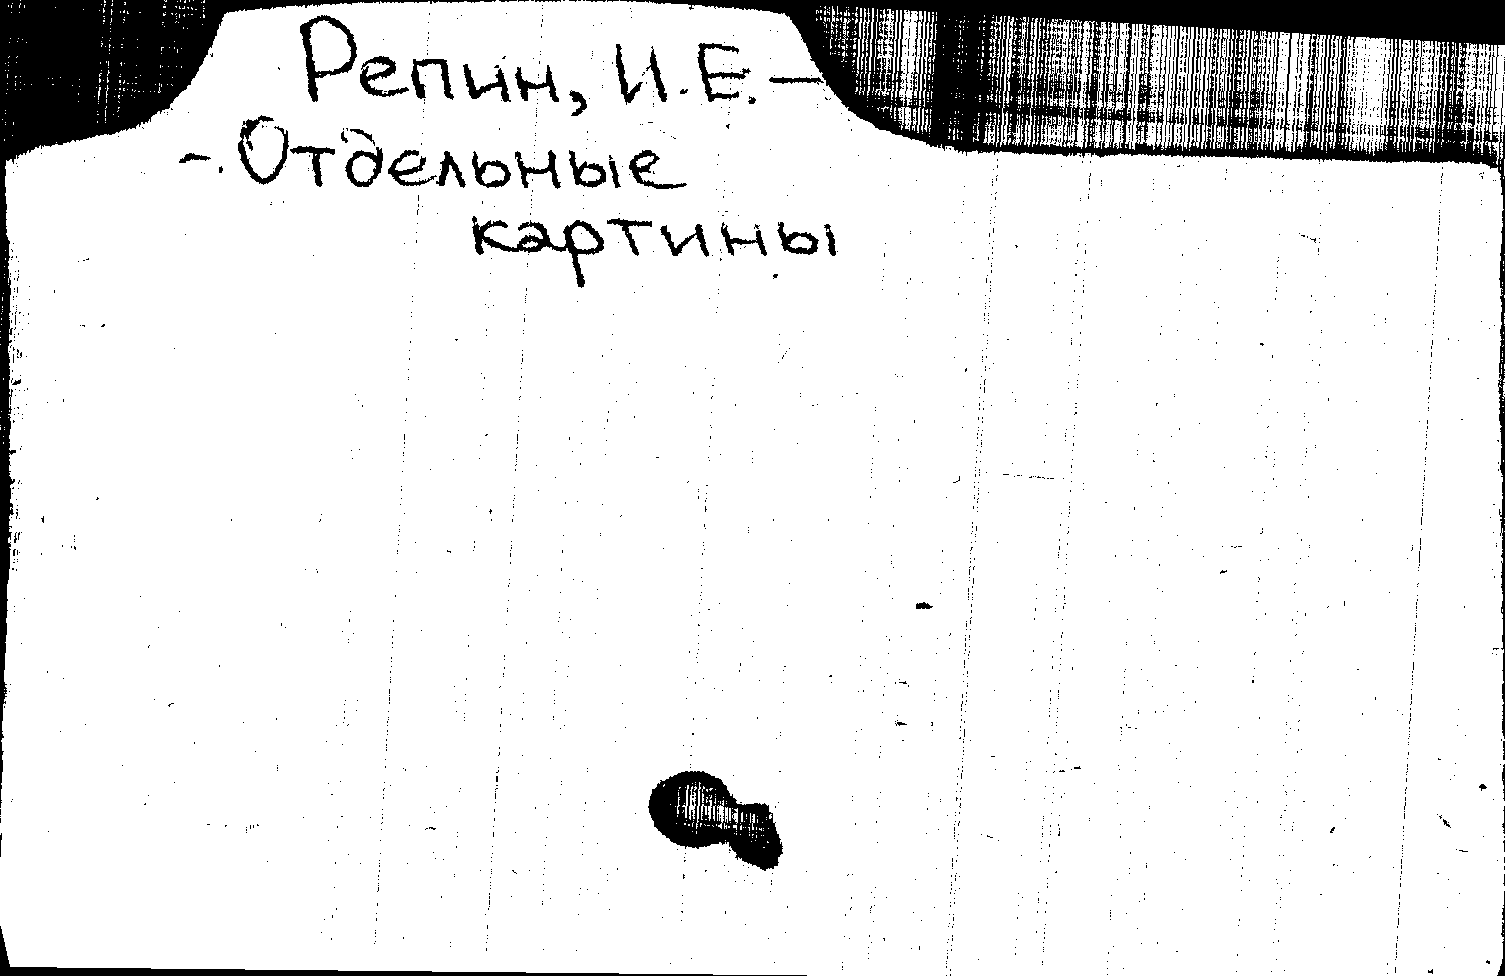 Репин, И.Е. —
-. Отдельные
картины